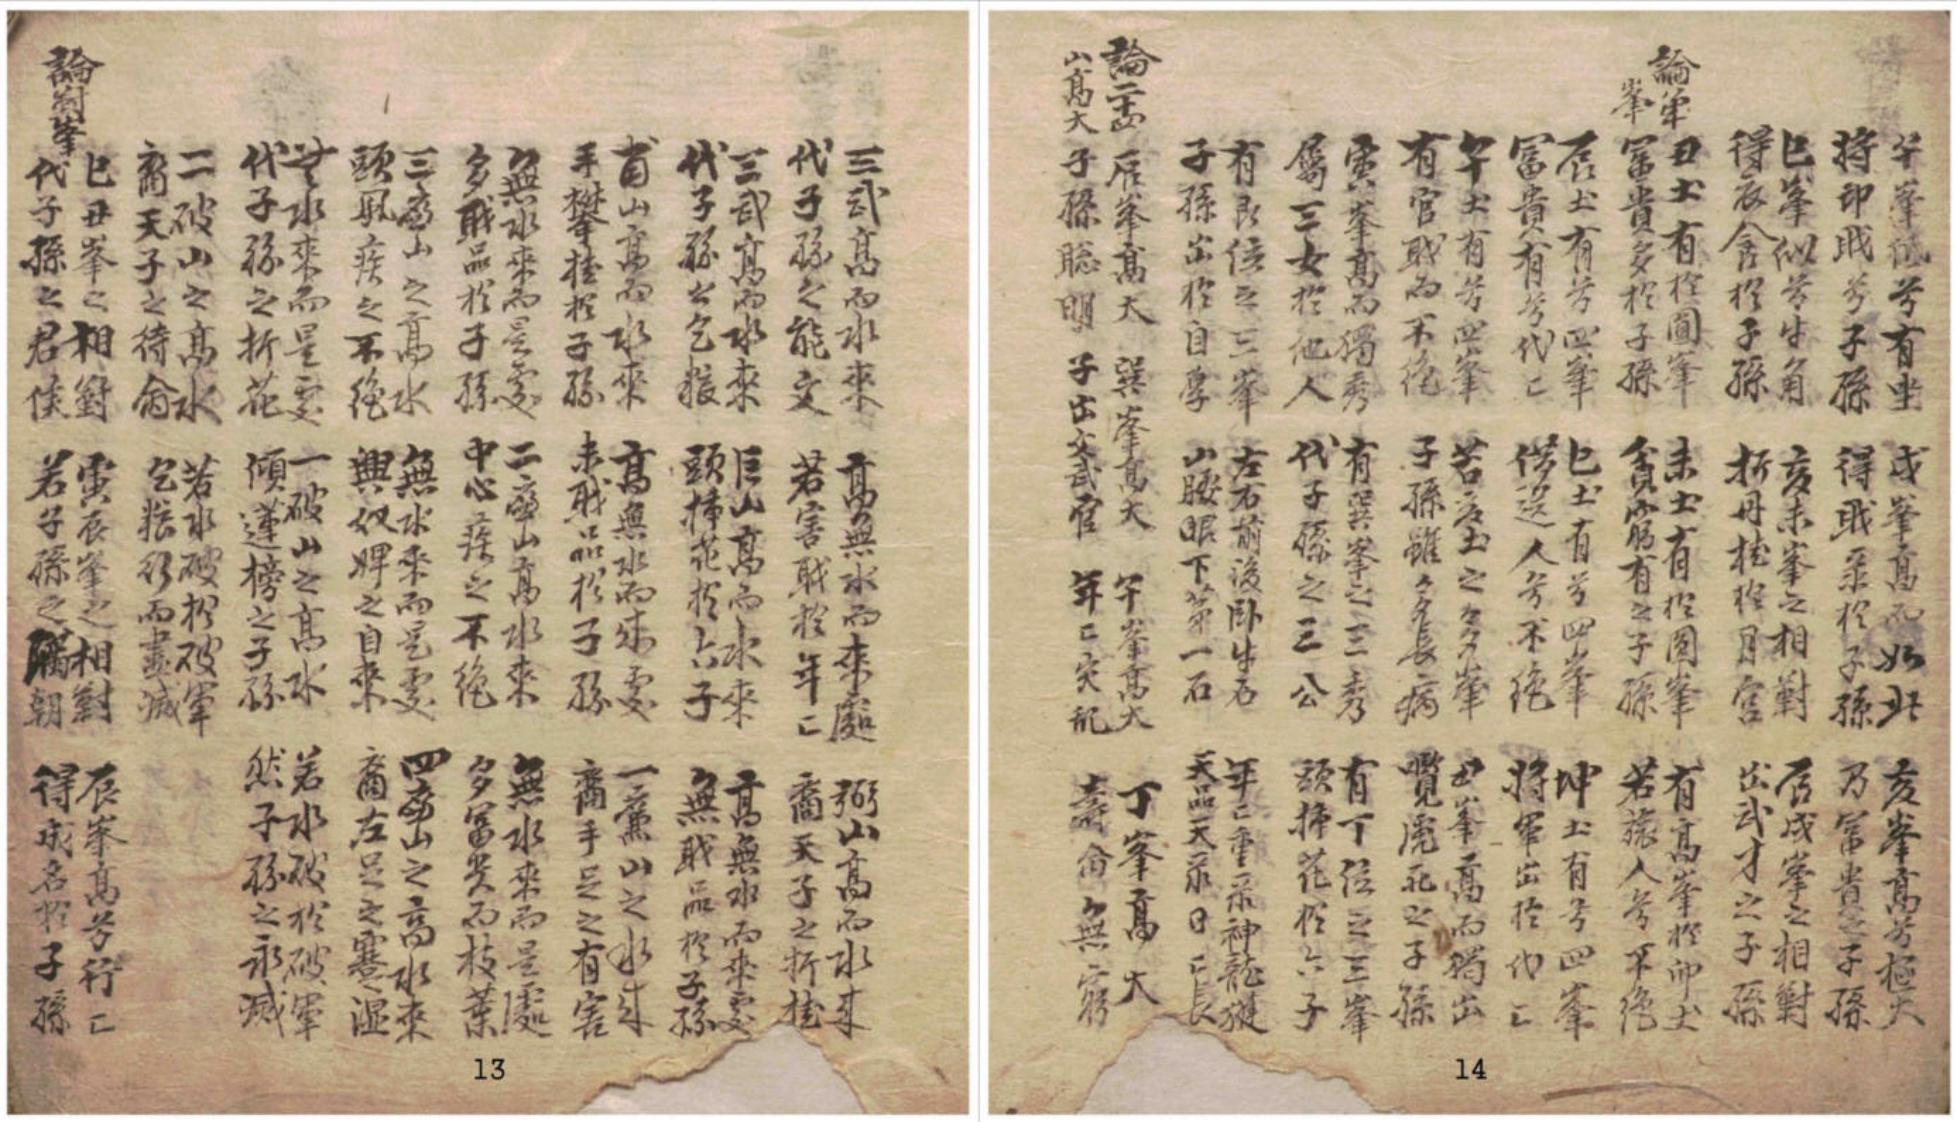 三武高而水來 高無水而來處 弼山高而水來
代子孫之能文 若害職於年亡 裔天子之折桂
三武高而水來 巨山高而水來 高無水而來處
代子孫之乞粮 頭揷花於六子 無職品於子孫
山高而水來 高無水而來處 一廉山之水來
手攀桂於子孫 未職品於子孫 裔手足之有害
無水來而是處 二廉山高水來 無水來而是處
多職品於子孫 中心疾之不絶 多富貴而枝葉
三廉山之高水 無水來而是處 四廉山之高水來
頭風疾之不絶 興奴婢之自來 裔左足之蹇湿
無水來而是處 一破山之高水 若水破於破軍
代子孫之折花 傾蓮榜之子孫 然子孫之永滅
二破山之高水 若水破於破軍
裔天子之待 乞粮行而盡滅
論對峯
巳丑峯之相對 寅辰峯之相對 辰峯高兮行亡
代子孫之君侯 若子孫之朝 得成名於子孫
13
午峯低兮有坐 戌峯高而如此 亥峯高兮極大
將印職兮子孫 得職祿於子孫 乃富貴之子孫
巳峯似兮牛角 亥未峯之相對 辰戌峯之相對
得衣食於子孫 折丹桂於月宮 出武才之子孫
論單峯
丑土有於圓峯 未土有於圓峯 有高峯於卯丈
富貴多於子孫 貧窮有之子孫 若旅人兮不絶
辰土有兮四峯 巳土有兮四峯 坤土有兮四峯
富貴有兮代亡 借送人兮不絶 將軍出於代亡
午土有兮四峯 若亥土之多峯 丑峯高而獨出
有官職而不絶 子孫雖多長病 覽虎死之子孫
寅峯高而獨秀 有巽峯之三秀 有丁位之三峯
屬三女於他人 代子孫之三公 頭揷花於六子
有艮位之三峯 左右前後卧牛石 年亡重祿神龍
子孫出於自孝 山腰眼下第一石 天品天祿日亡長
論二十四山高大
辰峯高大 巽峯高大 午峯高大 丁峯高大
子孫聡明 子出文武官 年亡突配 壽命無窮
14